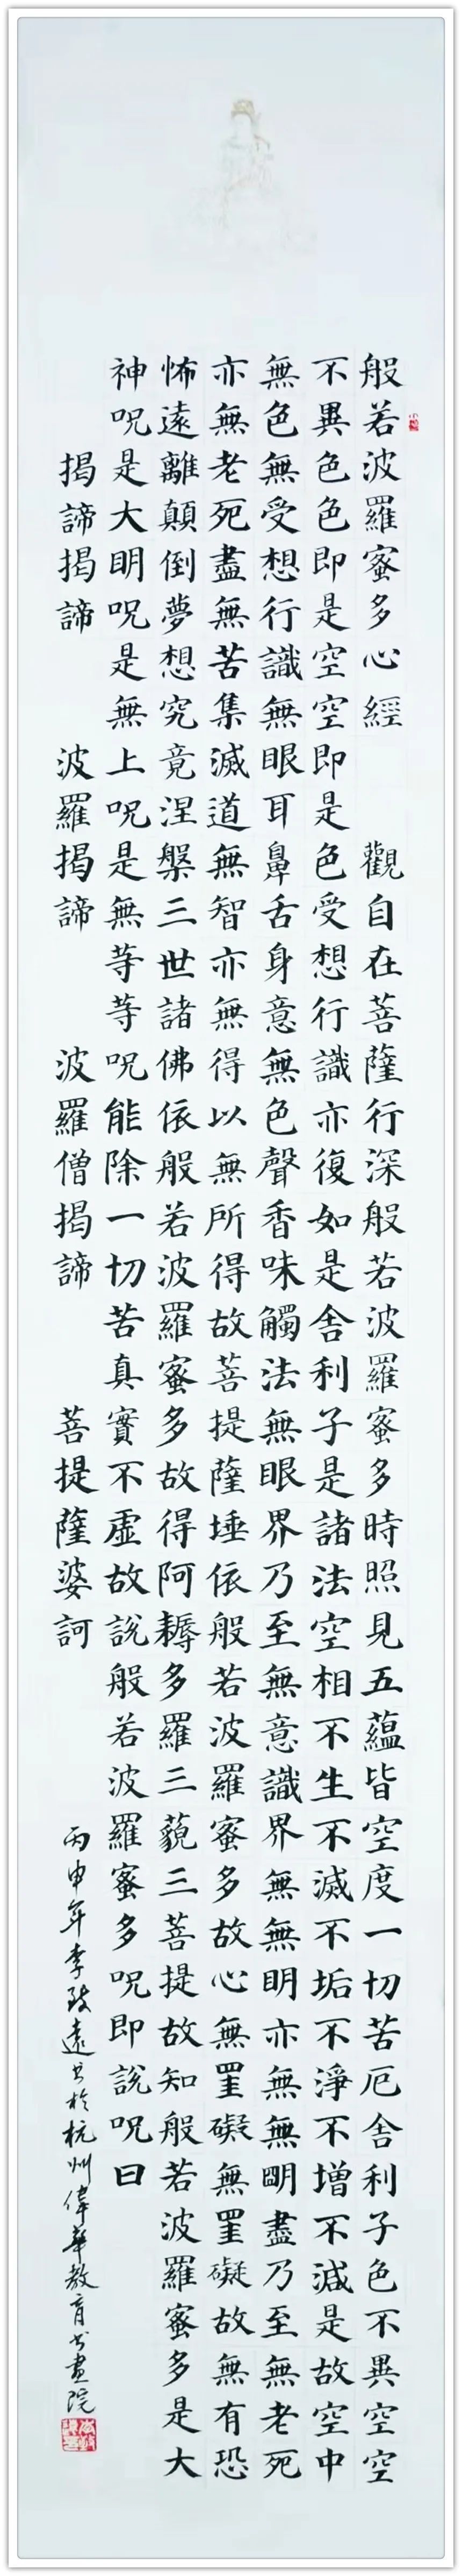 般若波羅蜜多心經 觀自在菩薩行深般若波羅蜜多時照見五蘊皆空度一切苦厄舍利子色不異空空
不異色色即是空空即是色受想行識亦復如是舍利子是諸法空相不生不滅不垢不淨不增不減是故空中
無色無受想行識無眼耳鼻舌身意無色聲香味觸法無眼界乃至無意識界無無眀亦無無眀盡乃至無老死
亦無老死盡無苦集滅道無智亦無得以無所得故菩提薩埵依般若波羅蜜多故心無罣礙無罣礙故無有恐
怖遠離顛倒夢想究竟涅槃三世諸佛依般若波羅蜜多故得阿耨多羅三藐三菩提故知般若波羅蜜多是大
神呪是大眀呪是無上呪是無等等呪能除一切苦真實不虛故說般若波羅蜜多呪即說呪曰
揭諦揭諦 波羅揭諦 波羅僧揭諦 菩提薩婆訶
丙申年李致遠书於杭州偉華教育书畫院